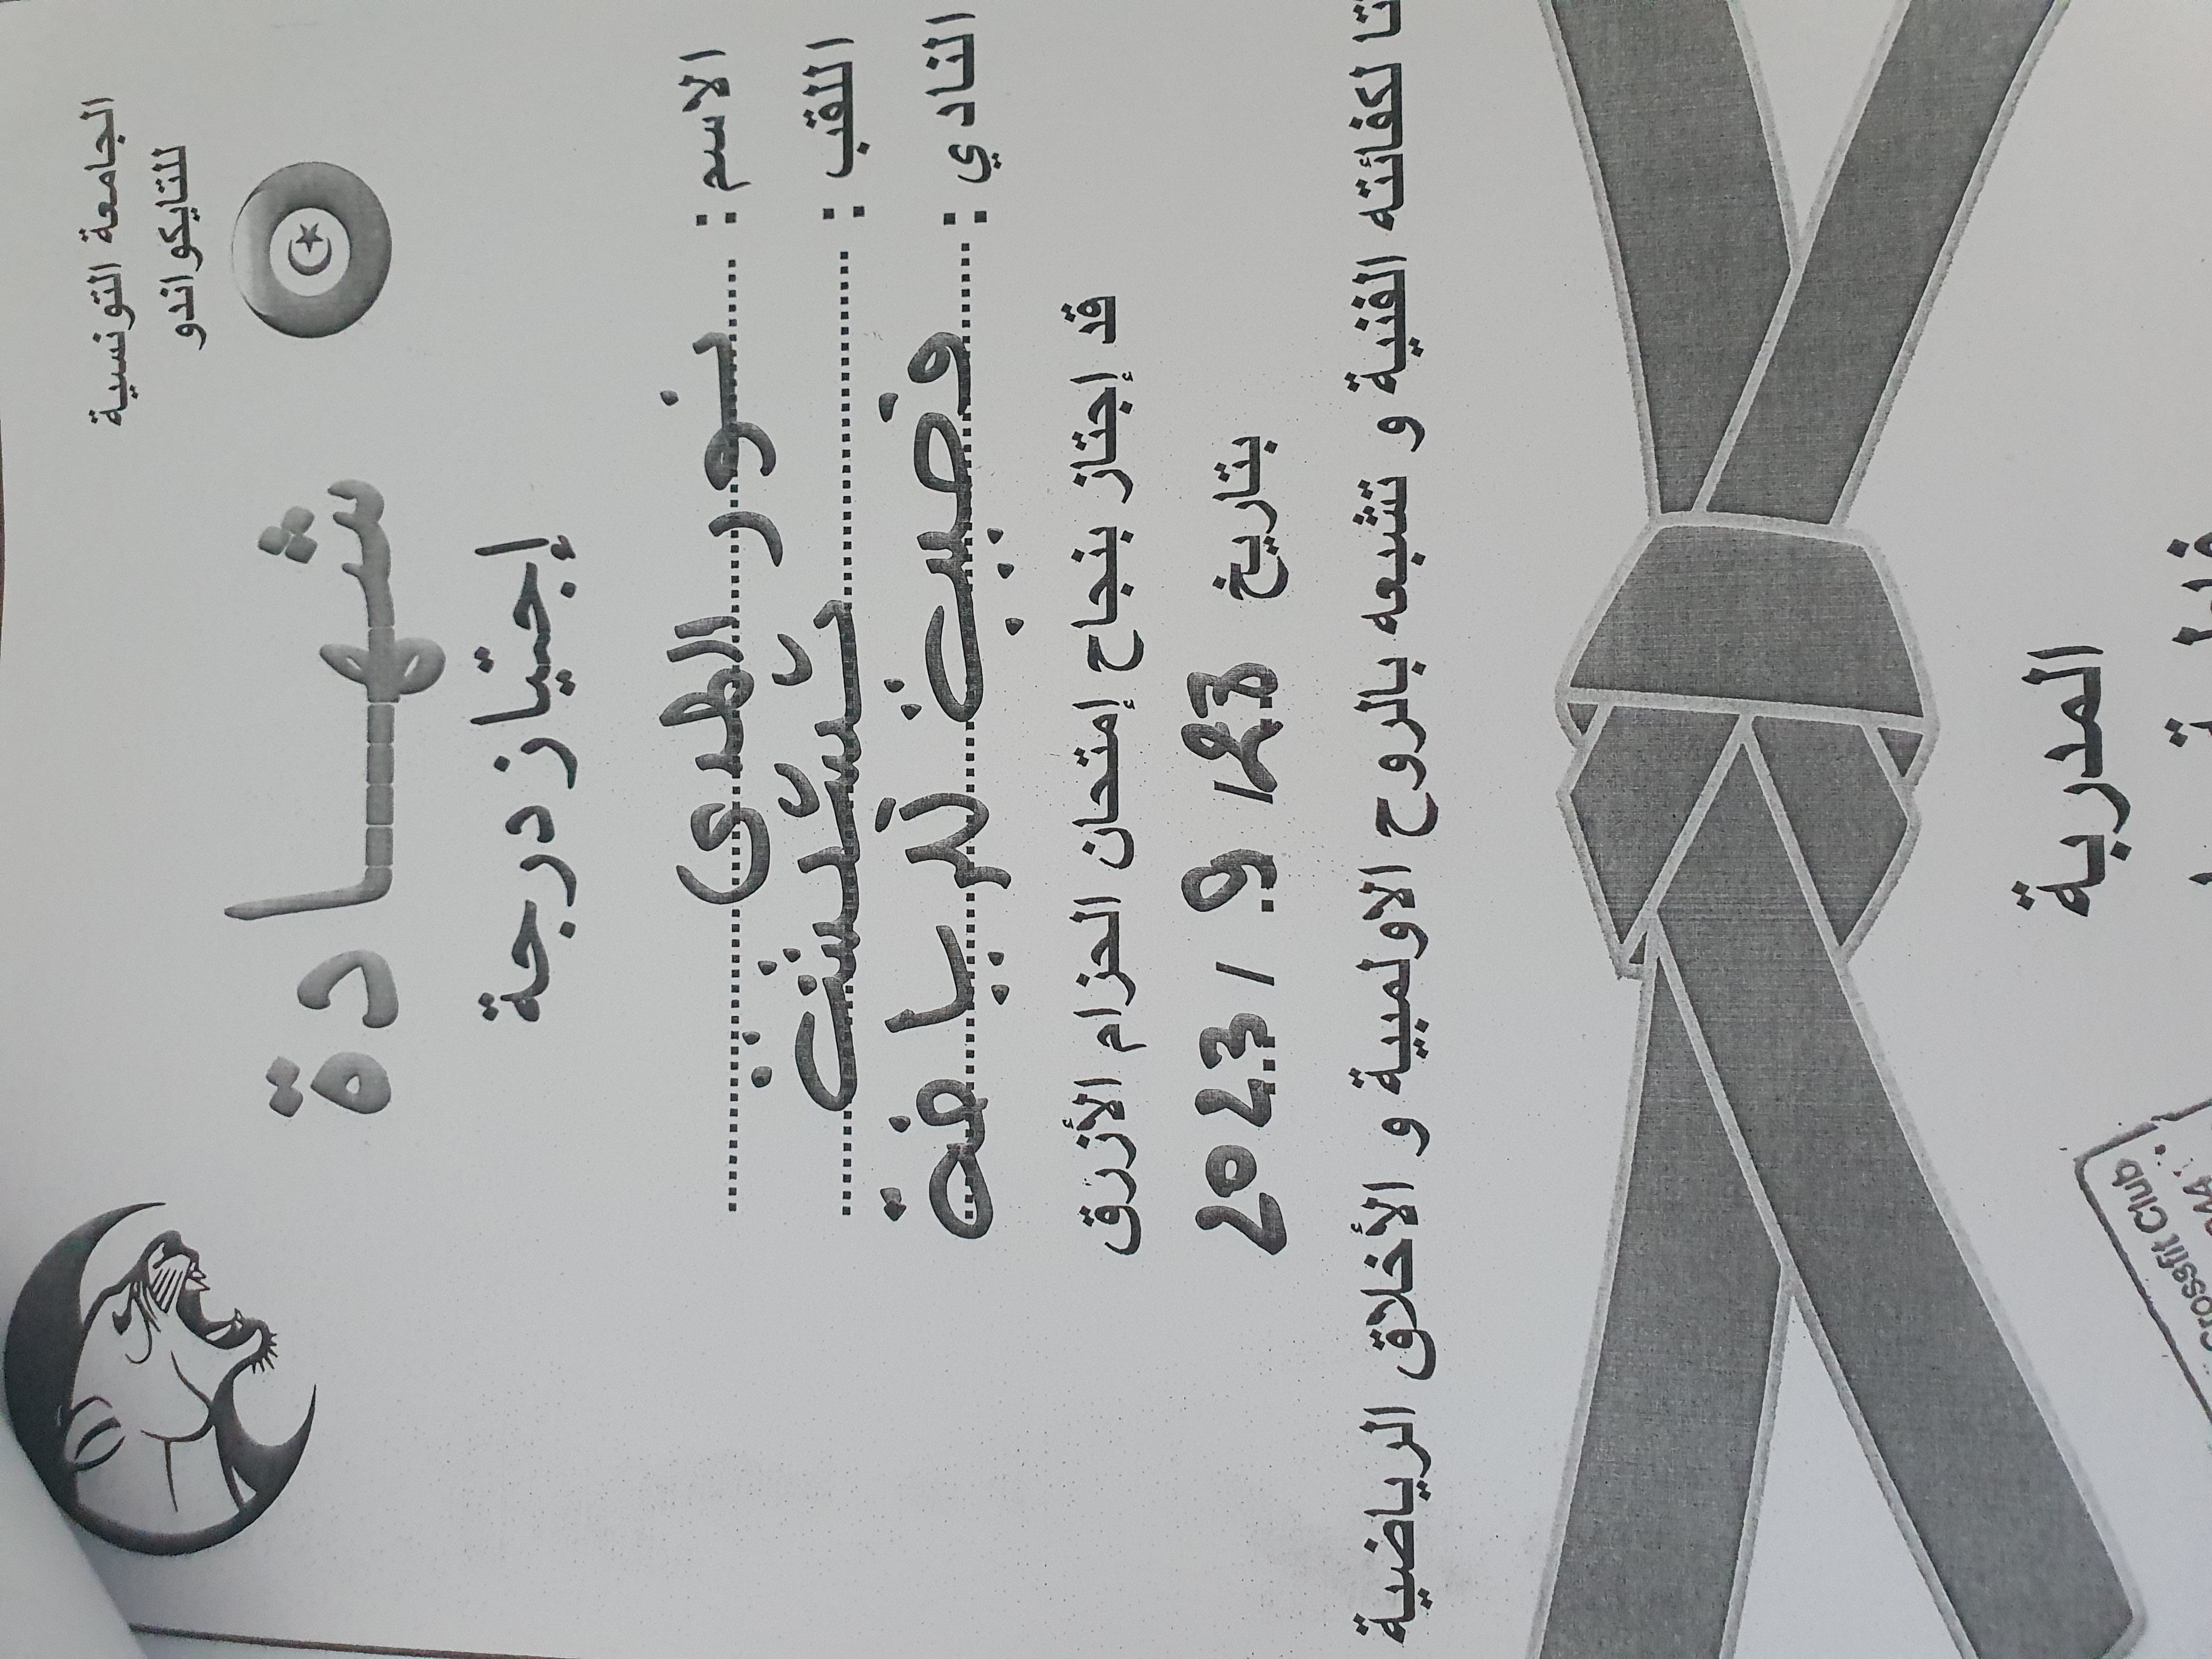 الجامعة التونسية
للتايكواندو
شهــــادة
إجتياز درجة
الاسم : نور الهدى
اللقب :
النادي : للرياضة
قد إجتاز بنجاح إمتحان الحزام الأزرق
بتاريخ 2023 / 9 / 23
لكفائته الفنية و تشبعه بالروح الاولمبية و الأخلاق الرياضية
المدربة
Crossfit Club